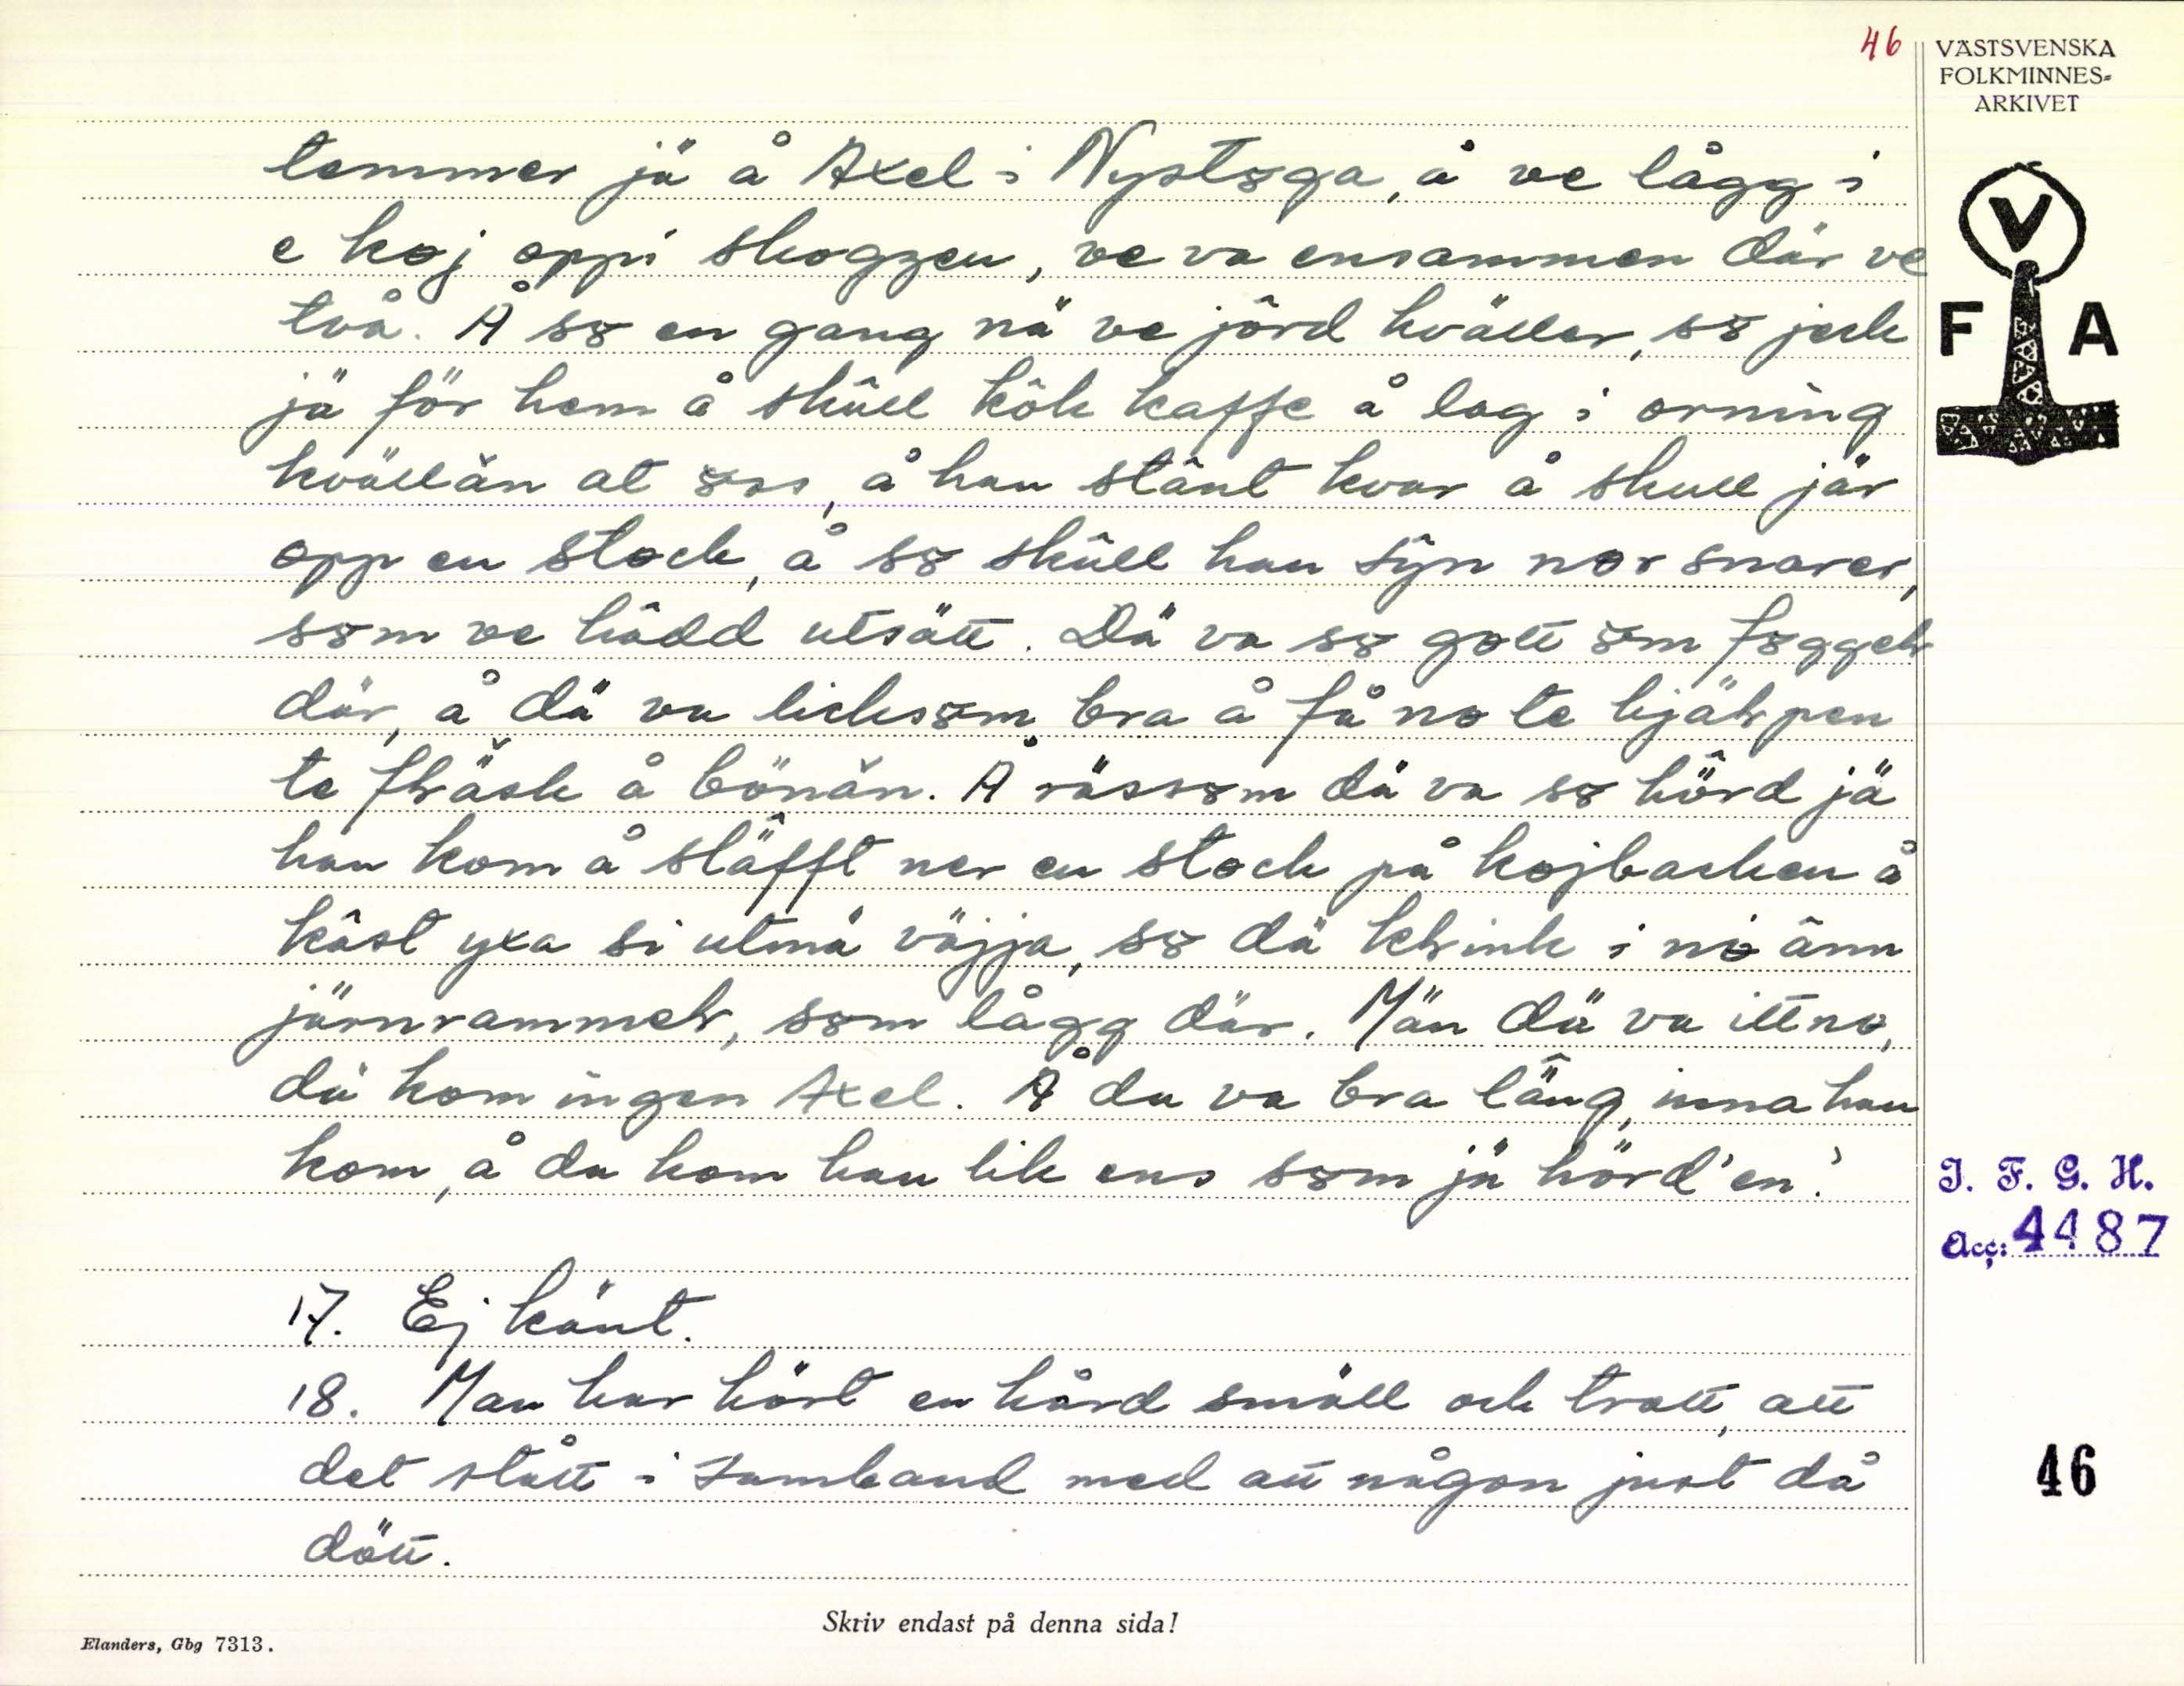 46
VÄSTSVENSKA
FOLKMINNES-
ARKIVET
V
F A
temmer jä å Axel i Nystȣga, å ve lågg i
e koj oppi skogȝen, ve va ensammen där ve
två. Å sȣ en gang nä ve jörd kväller, sȣ jeck
jä för hem å skûll kôk kaffe å lag i orning
kvällän at ȣss, å han stânt kvar å skull jär
opp en stock, å sȣ skûll han sŷn nor snarer,
sȣm ve hâdd utsätt. Dä va sȣ gott ȣm fȣggeɫ
där, å dä va licksȣm bra å få no te hjäɫpen
te fɫäsk å bönän. Å rässȣm dä va sȣ hörd jä
han kom å släfft ner en stock på kojbacken å
kâst yxa si utmä väjja, sȣ dä kɫink i no änn
järnrammeɫ, sȣm lågg där. Män dä va itt no,
dä kom ingen Axel. Å da va bra läng, inna han
kom, å da kom han lik ens sȣm jä hörd'en.'
17. Ej känt.
18. Man har hört en hård smäll och trott, att
det stått i samband med att någon just då
dött.
I. F. G. H.
Acc: 4487
46
Skriv endast på denna sida!
Elanders, Gbg 7313.